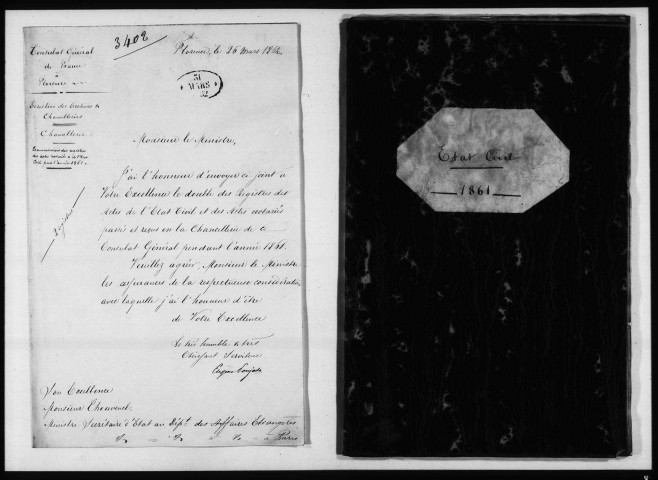 3402
Consulat Général
de France
à
Florence
Direction des Archives &
Chancelleries
Chancellerie
Transmission des registres
des actes notariés & de l'Etat
Civil pour l'année 1861.
Florence, le 26 Mars 1862.
31
MARS
62
Monsieur le Ministre,
J'ai l'honneur d'envoyer ci joint à
Votre Excellence le double des Registres des
Actes de l'Etat Civil et des Actes notariés
passés et reçus en la Chancellerie de ce
Consulat Général pendant l'année 1861.
Veuillez agréer, Monsieur le Ministre
les assurances de la respectueuse considération
avec laquelle j'ai l'honneur d'être
de Votre Excellence
Le très humble & très
Obéissant Serviteur
Eugène
Son Excellence
Monsieur Thouvenel
Ministre Secrétaire d'Etat au Dépt. des Affaires Etrangères
à Paris
Etat Civil
1861